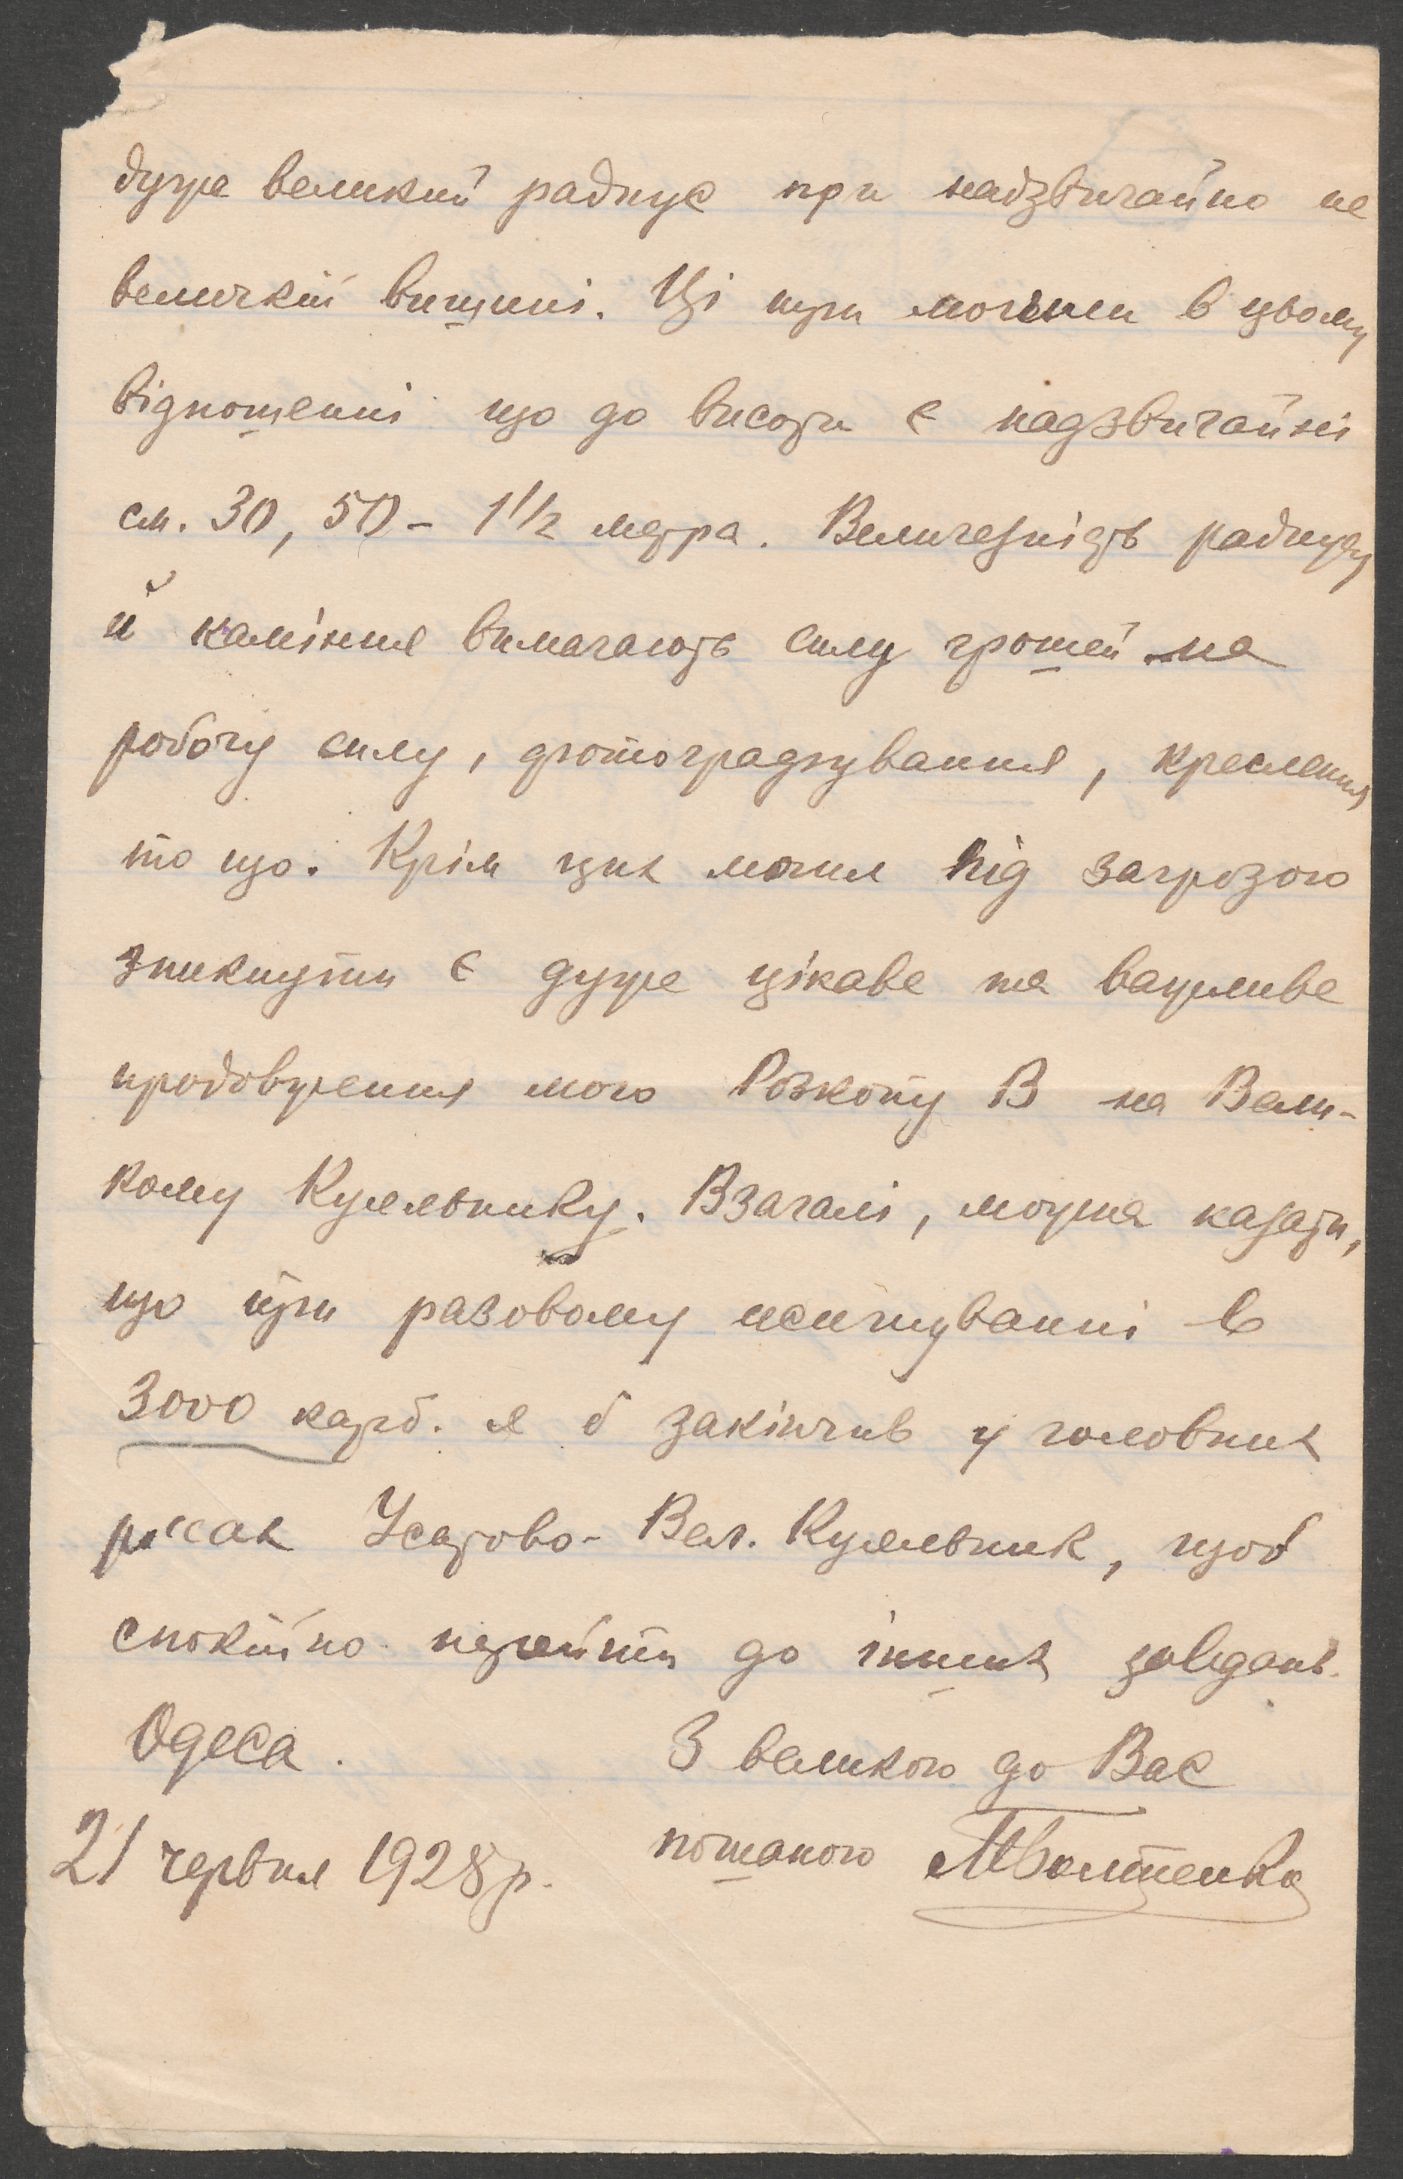 дуже великий радиус при надзвичайно не
величкій вишині. Ці три могили в цьому
відношенні що до висоти є надзвичайні
см. 30, 50 - 1 1/2 метра. Величезність радиусу
й каміння вимагають силу грошей на
робочу силу, фотографування, креслення
то що. Крім цих могил під загрозою
зникнути є дуже цікаве та важливе
продовження мого Розкопу В на Вели-
кому Куяльнику. Взагалі, можна казати,
що при разовому асигнуванні в
3000 карб. я б закінчив у головних
рисах Усатово-Вел. Куяльник, щоб
спокійно перейти до інших завдань.
Одеса. З великою до Вас
21 червня 1928 р. пошаною МБолтенко